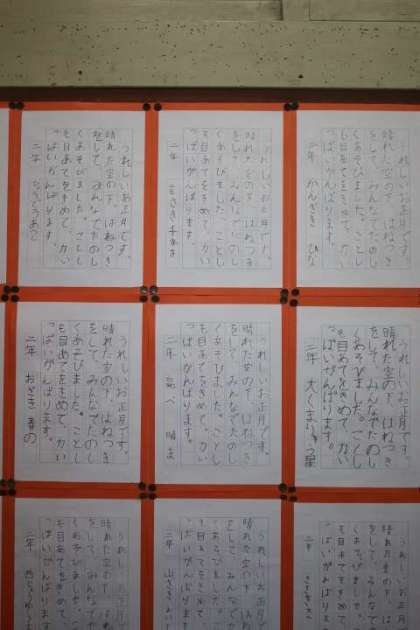 うれしいお正月です。
晴れた空の下、はねつき
をして、みんなでたのし
くあそびました。ことし
も目あてをきめて、力い
っぱいがんばります。
二年 かんざき ひな
うれしいお正月です。
晴れた空の下、はねつき
をして、みんなでたのし
くあそびました。ことし
も目あてをきめて、力い
っぱいがんばります。
二年
うれしいお正月です。
晴れた空の下、はねつき
をして、みんなでたのし
くあそびました。ことし
も目あてをきめて、力い
っぱいがんばります。
二年
うれしいお正月です。
晴れた空の下、はねつき
をして、みんなでたのし
くあそびました。ことし
も目あてをきめて、力い
っぱいがんばります。
二年 大くまりゅう星
うれしいお正月です。
晴れた空の下、はねつき
をして、みんなでたのし
くあそびました。ことし
も目あてをきめて、力い
っぱいがんばります。
二年
うれしいお正月です。
晴れた空の下、はねつき
をして、みんなでたのし
くあそびました。ことし
も目あてをきめて、力い
っぱいがんばります。
二年 おざき 春の
うれしいお正月
晴れた空の下、は
をして、みんなで
くあそびました
も目あてをきめて
っぱいがんばりま
二年
うれしいお正月
晴れた空の下、は
をして、みんなで
くあそびました
も目あてをきめて
っぱいがんばりま
二年
うれしいお正月
晴れた空の下、は
をして、みんな
くあそびました
も目あてをきめて、
っぱいがんばりま
二年